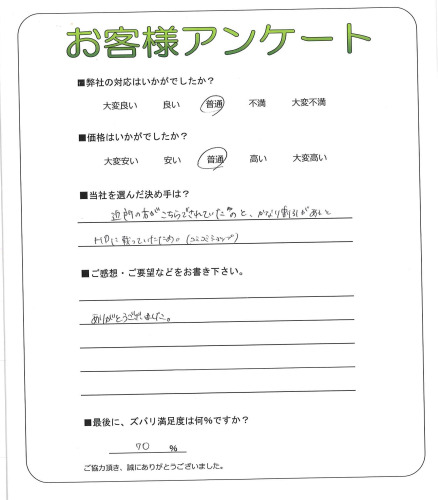 お客様アンケート
■弊社の対応はいかがでしたか?
大変良い 良い 普通 不満 大変不満
■価格はいかがでしたか?
大変安い 安い 普通 高い 大変高い
■当社を選んだ決め手は?
の方がこちらでされていたのと、かなり割引があると
HPに載っていたため。
■ご感想・ご要望などをお書き下さい。
ありがとうございました。
■最後に、ズバリ満足度は何%ですか?
70 %
ご協力頂き、誠にありがとうございました。